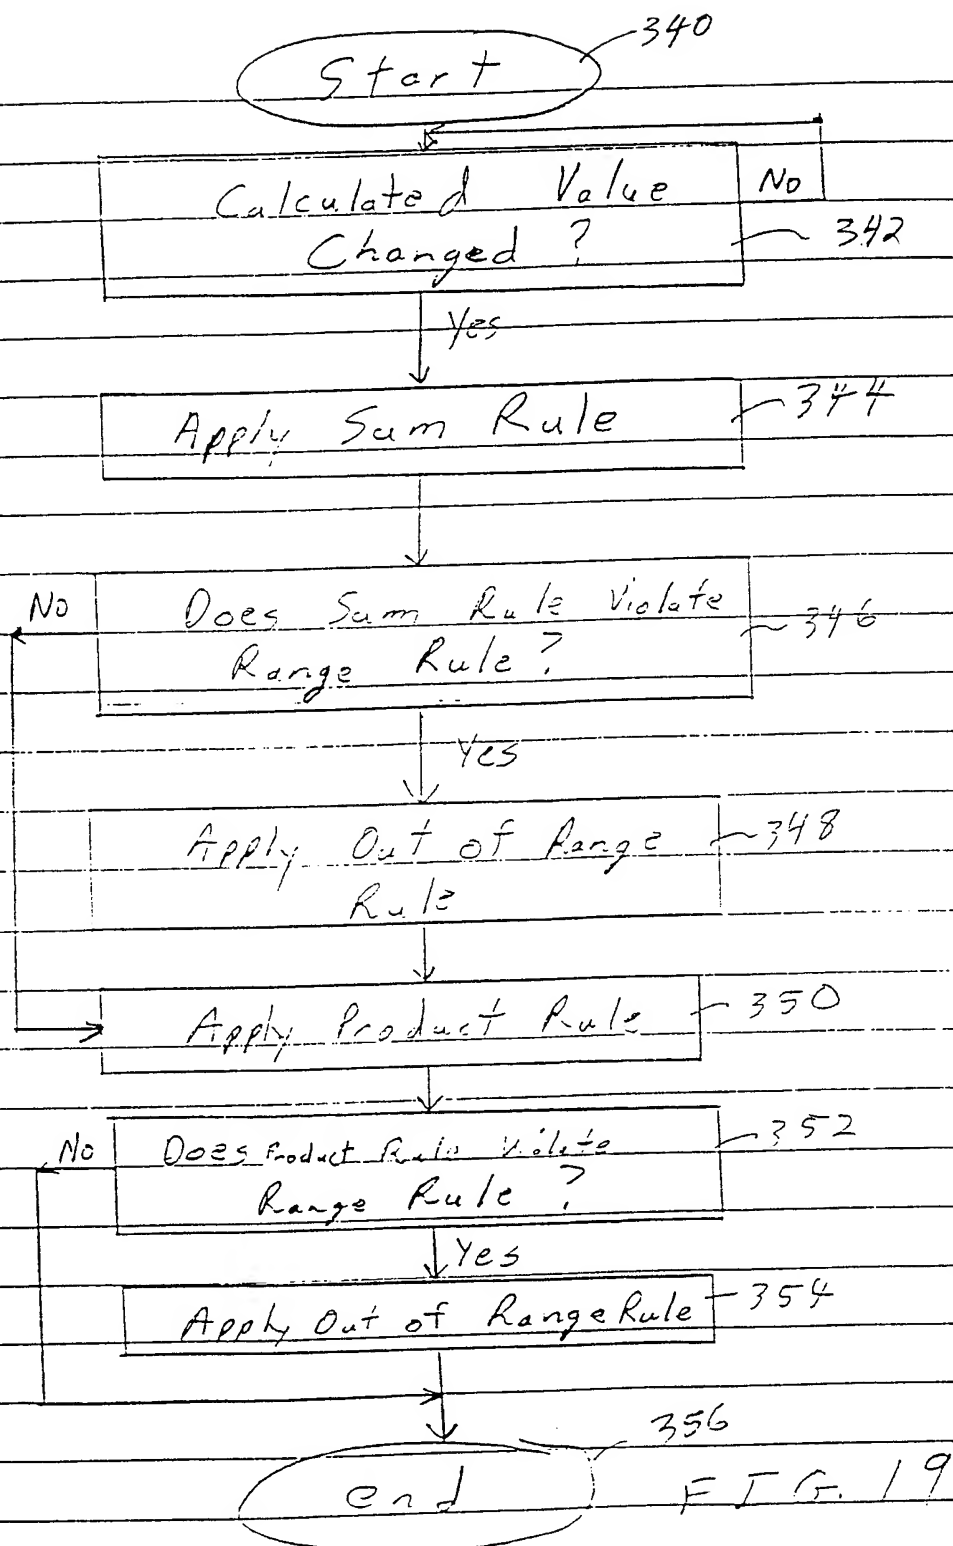 340
Start
Calculated Value
Changed ?
No
342
Yes
Apply Sum Rule
344
No
Does Sum Rule Violate
Range Rule ?
346
Yes
Apply Out of Range
Rule
348
Apply Product Rule
350
No
Does Product Rule Violate
Range Rule ?
352
Yes
Apply Out of Range Rule
354
356
end
FIG. 19